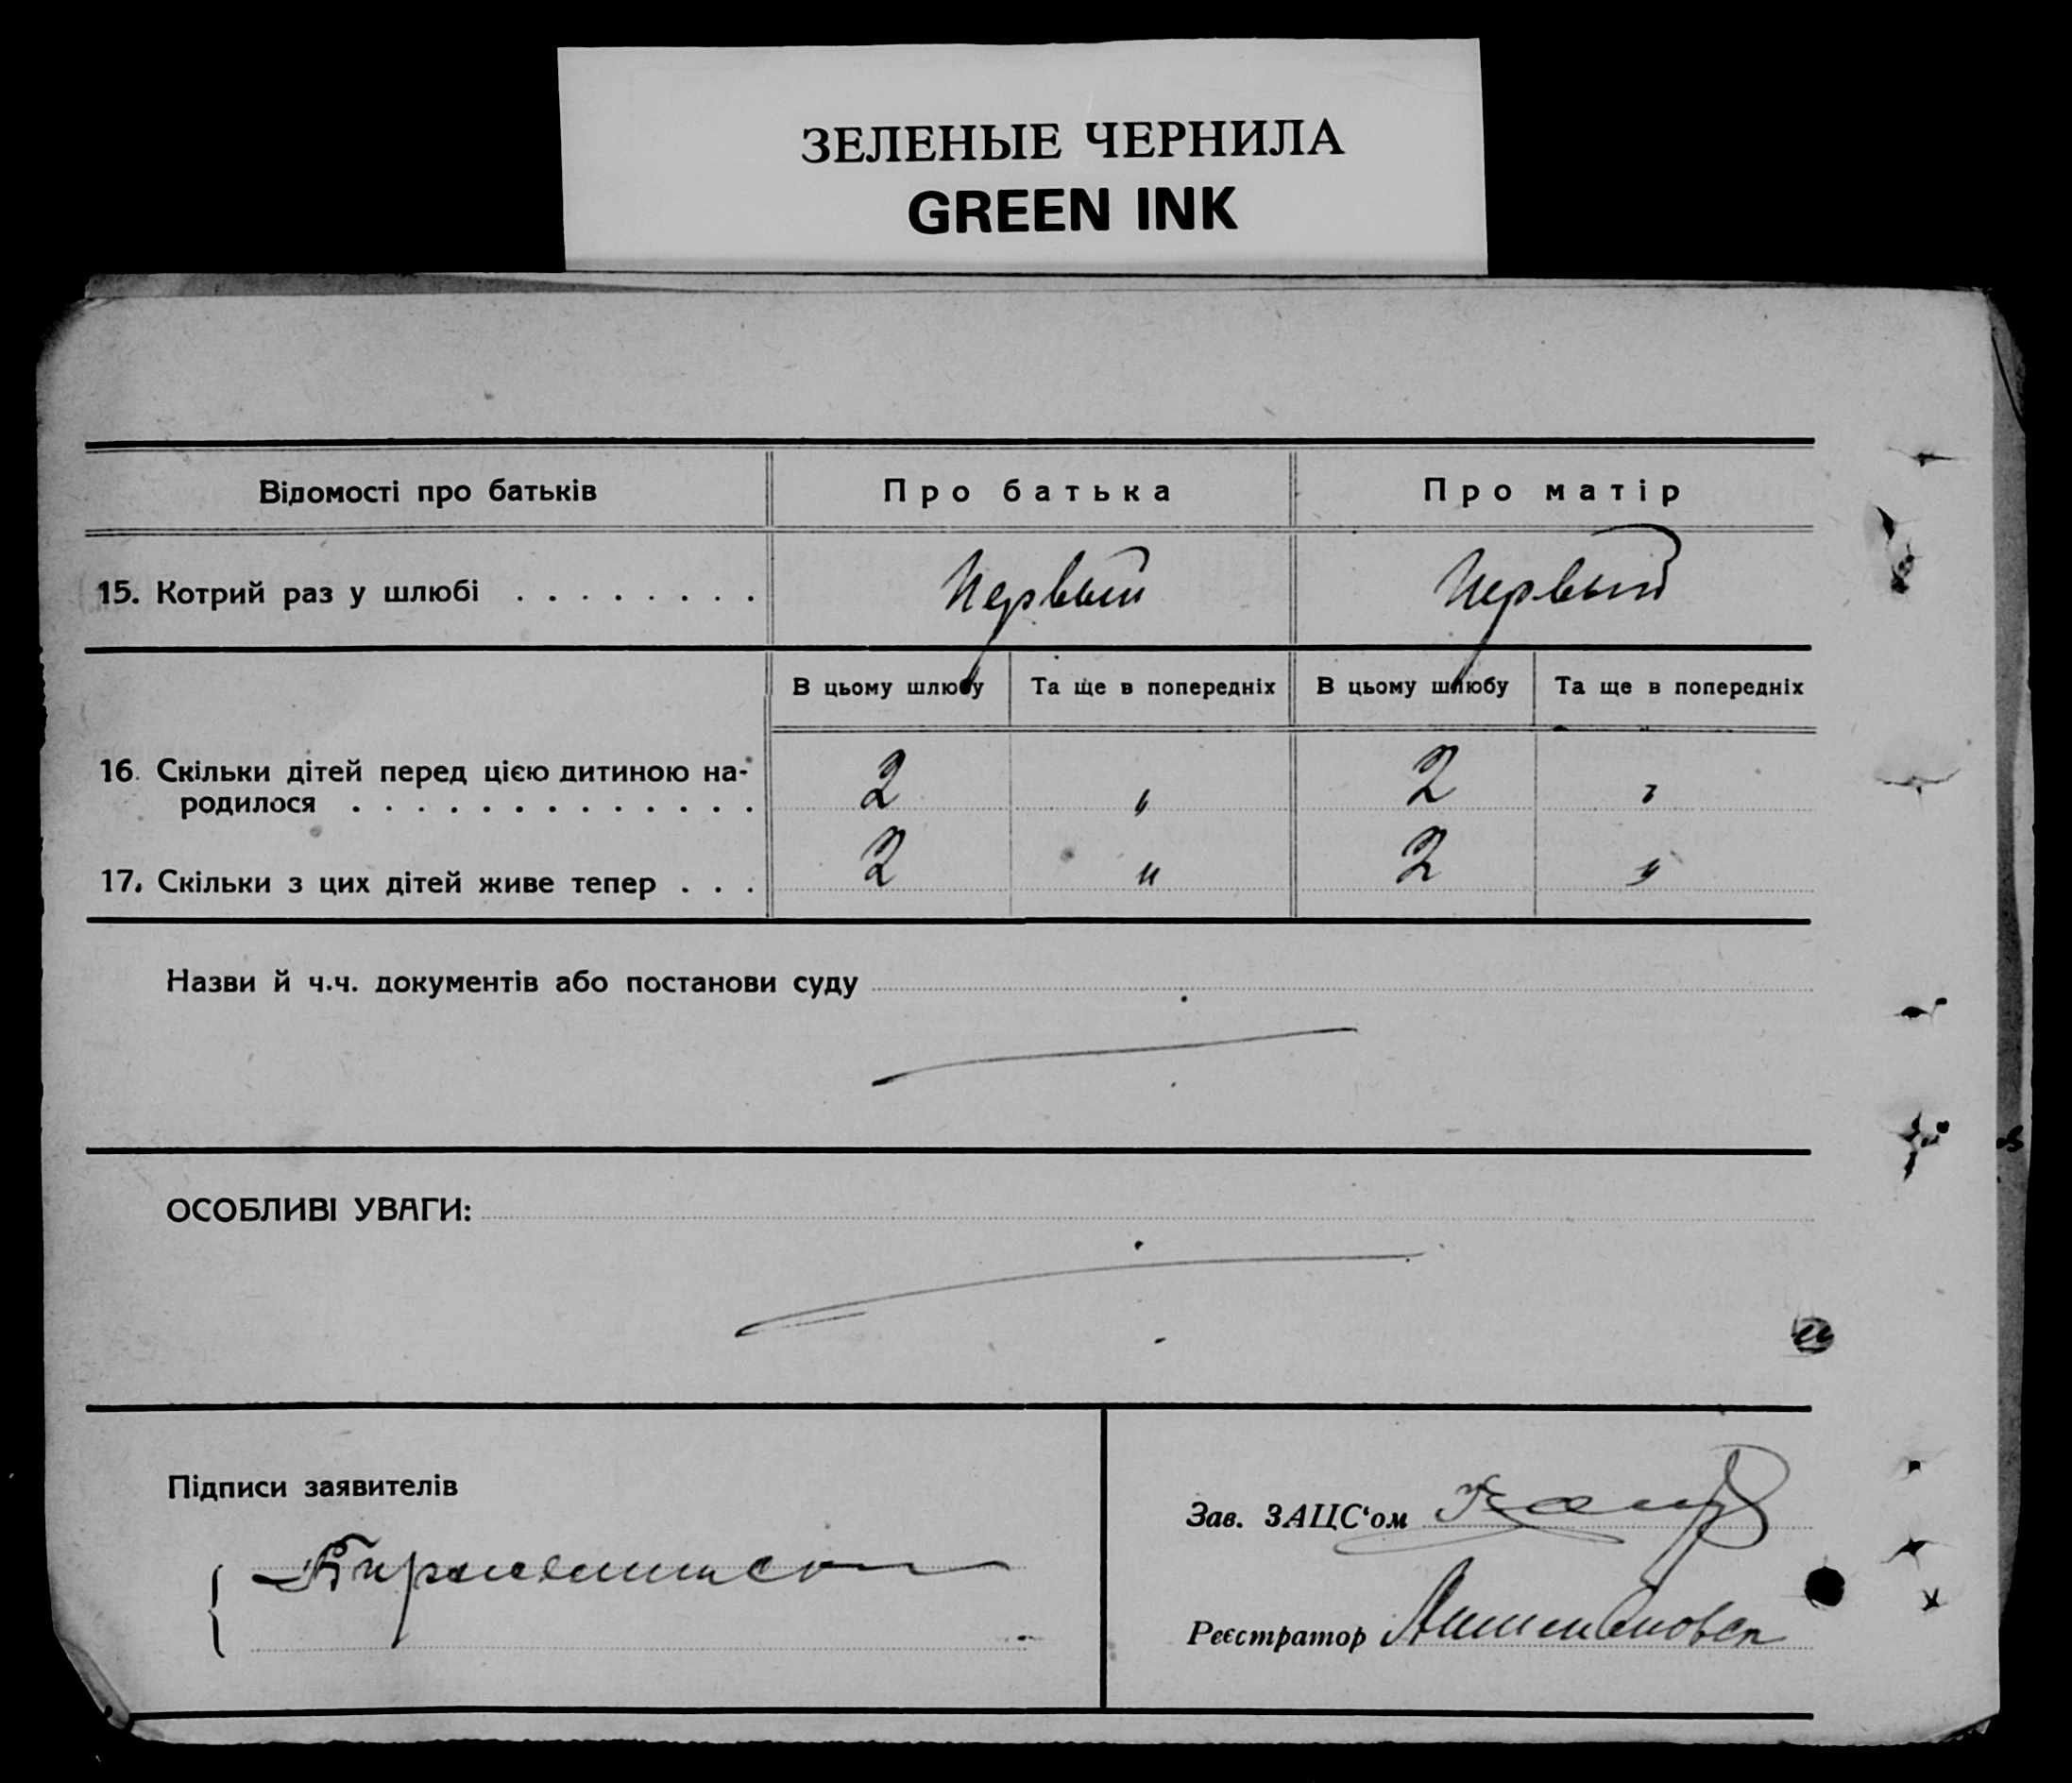 ЗЕЛЕНЫЕ ЧЕРНИЛА
GREEN INK
Відомості про батьків Про батька Про матір
15. Котрий раз у шлюбі . . . . . . . . Первый Первый
В цьому шлюбу Та ще в попередніх В цьому шлюбу Та ще в попередніх
16. Скільки дітей перед цією дитиною на-
родилося . . . . . . . . . . . . . 2 " 2 "
17. Скільки з цих дітей живе тепер . . . 2 " 2 "
Назви й ч.ч. документів або постанови суду
ОСОБЛИВІ УВАГИ:
Підписи заявителів
Зав. ЗАЦС'ом
Реєстратор